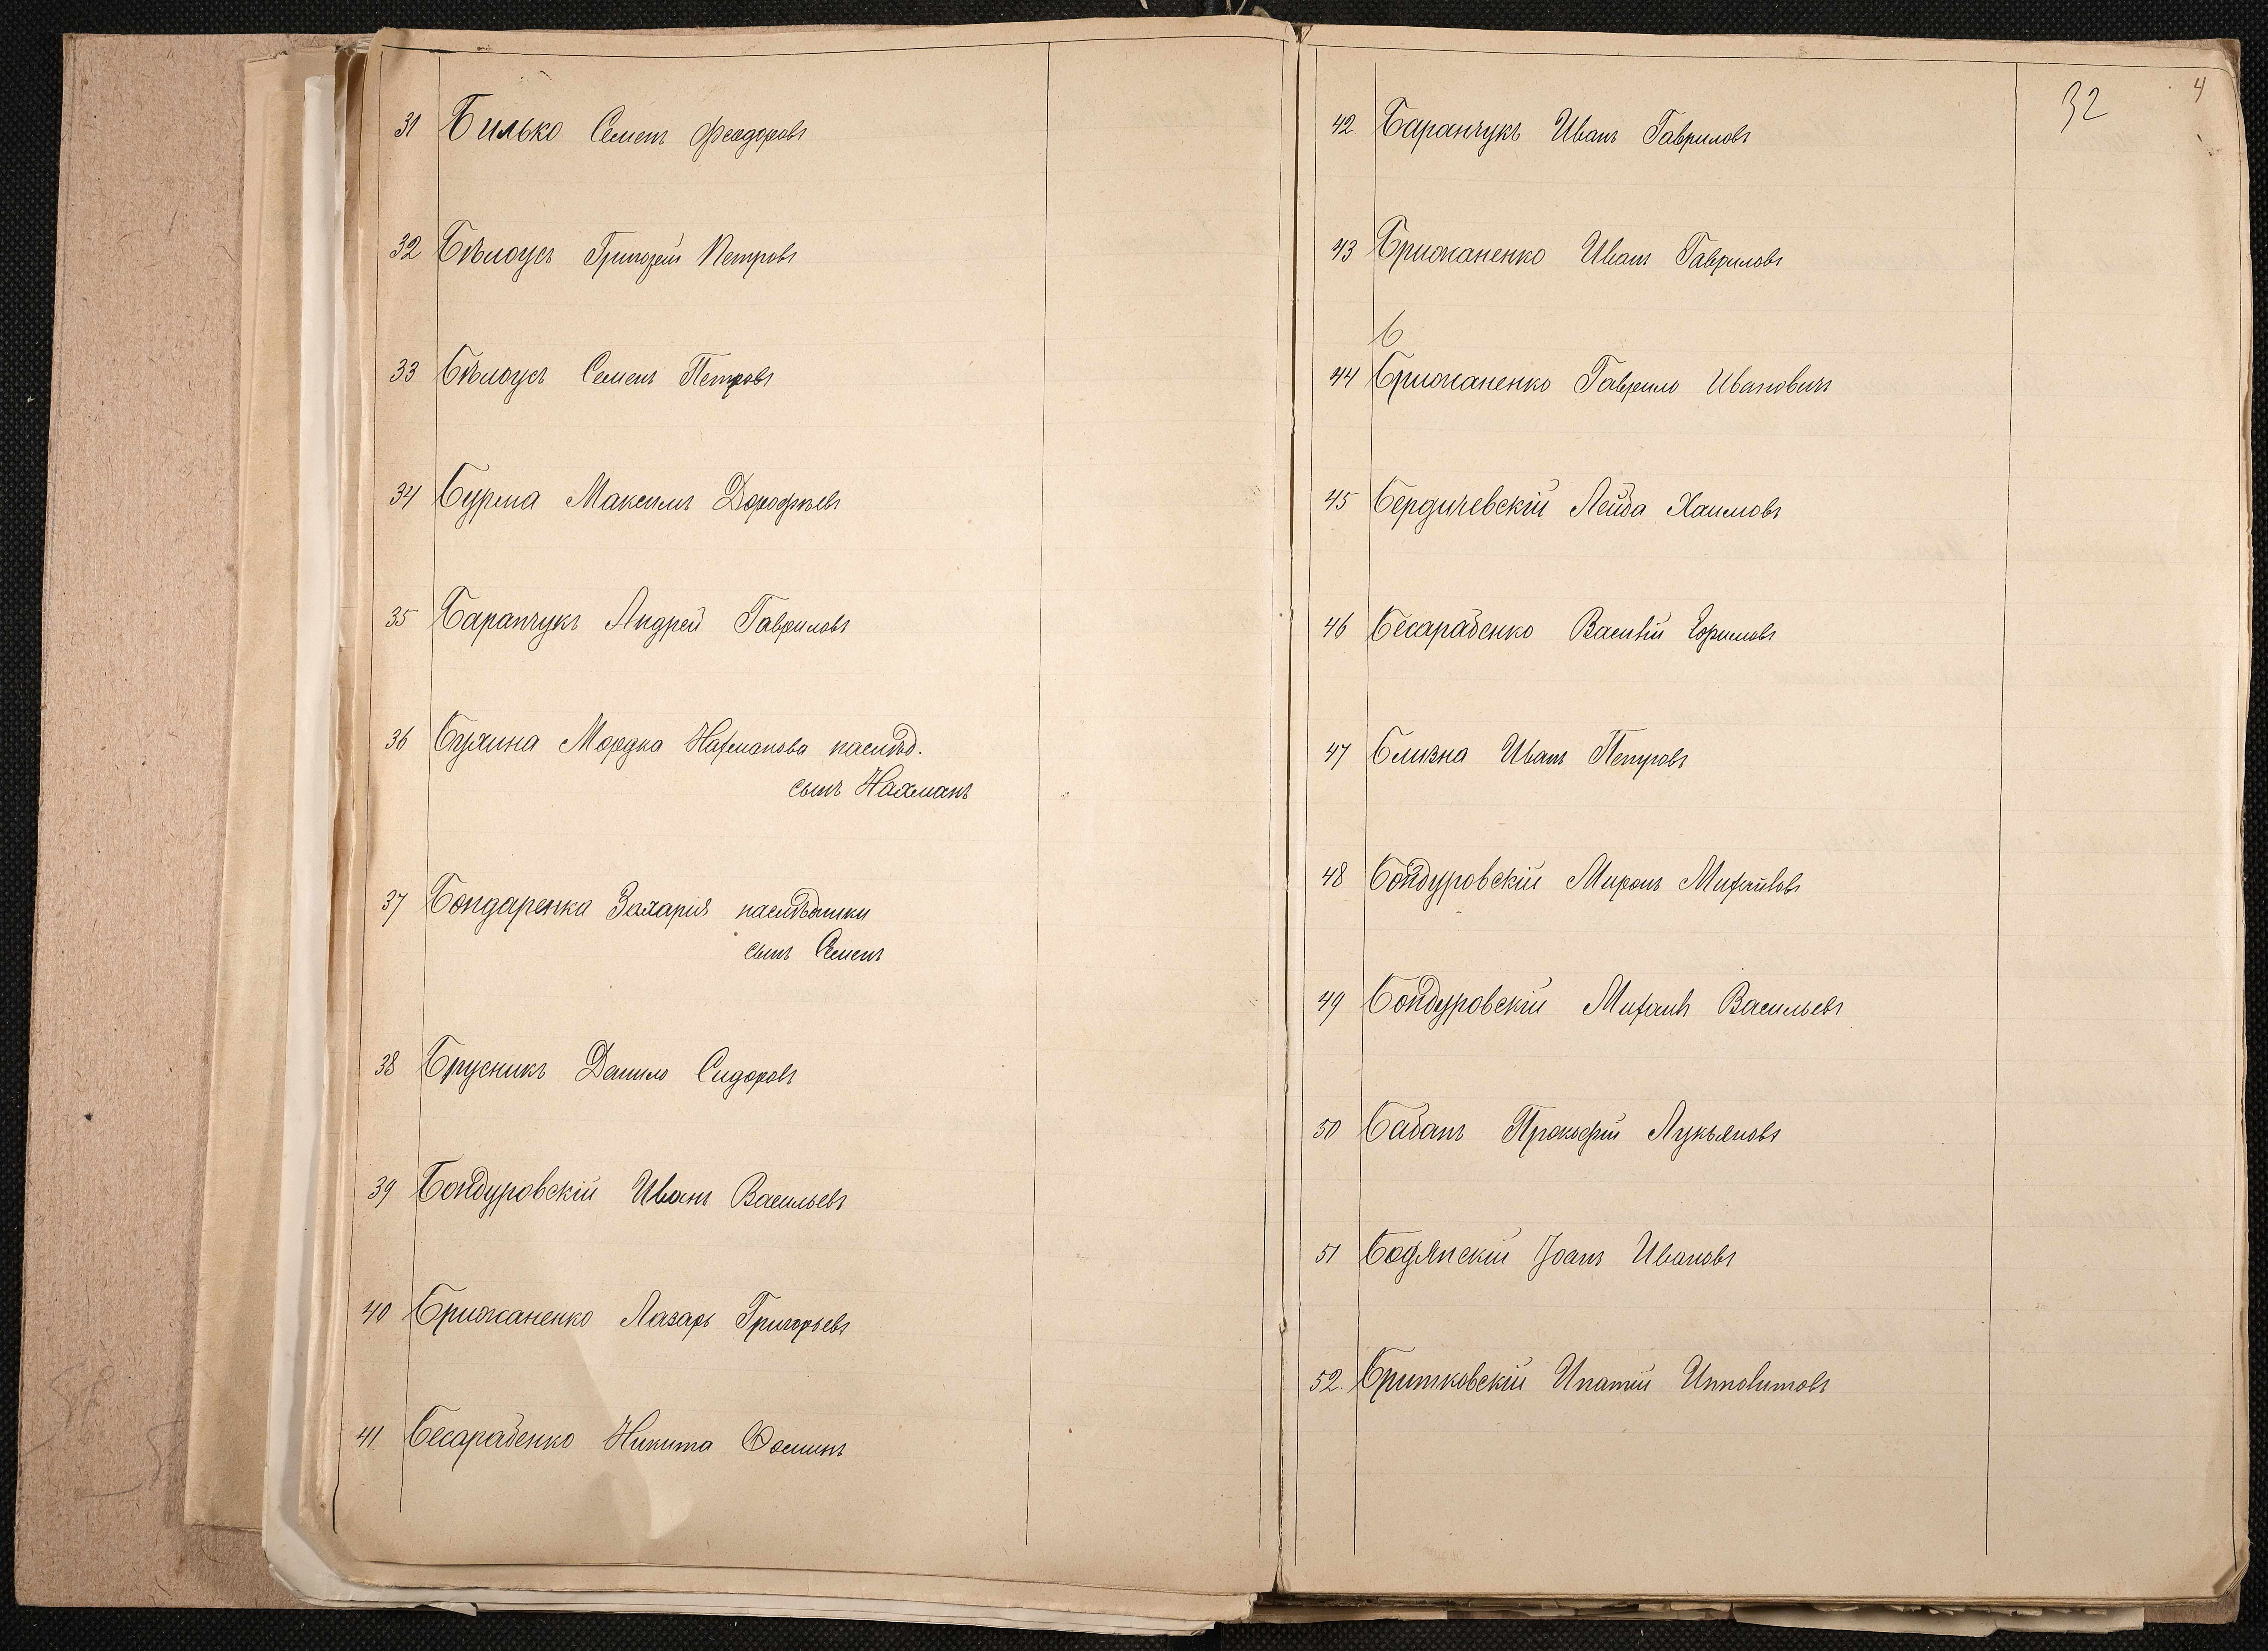 31 Билько Семенъ Феодоровъ
32 Бѣлоусъ Григорій Петровъ
33 Бѣлоусъ Семенъ Петровъ
34 Бурма Максимъ Дорофѣевъ
35 Баранчукъ Андрей Гавриловъ
36 Бухина Мордка Нахманова наслѣд.
сынъ Нахманъ
37 Бондаренка Захарія наслѣдники
сынъ Семенъ
38 Брусникъ Данило Сидоровъ
39 Бондуровскій Иванъ Васильевъ
40 Брижаненко Лазарь Григорьевъ
41 Бесарабенко Никита Фоминъ
32 4
42 Баранчукъ Иванъ Гавриловъ
43 Брижаненко Иванъ Гавриловъ
44 Брижаненко Гаврило Ивановичъ
45 Бердичевскій Лейба Хаимовъ
46 Бесарабенко Василій Ефимовъ
47 Близна Иванъ Петровъ
48 Бондуровскій Миронъ Михайловъ
49 Бондуровскій Михаилъ Васильевъ
50 Бабанъ Прокофій Лукьяновъ
51 Бодянскій Іоанъ Ивановъ
52. Бритковскій Ипатій Ипполитовъ